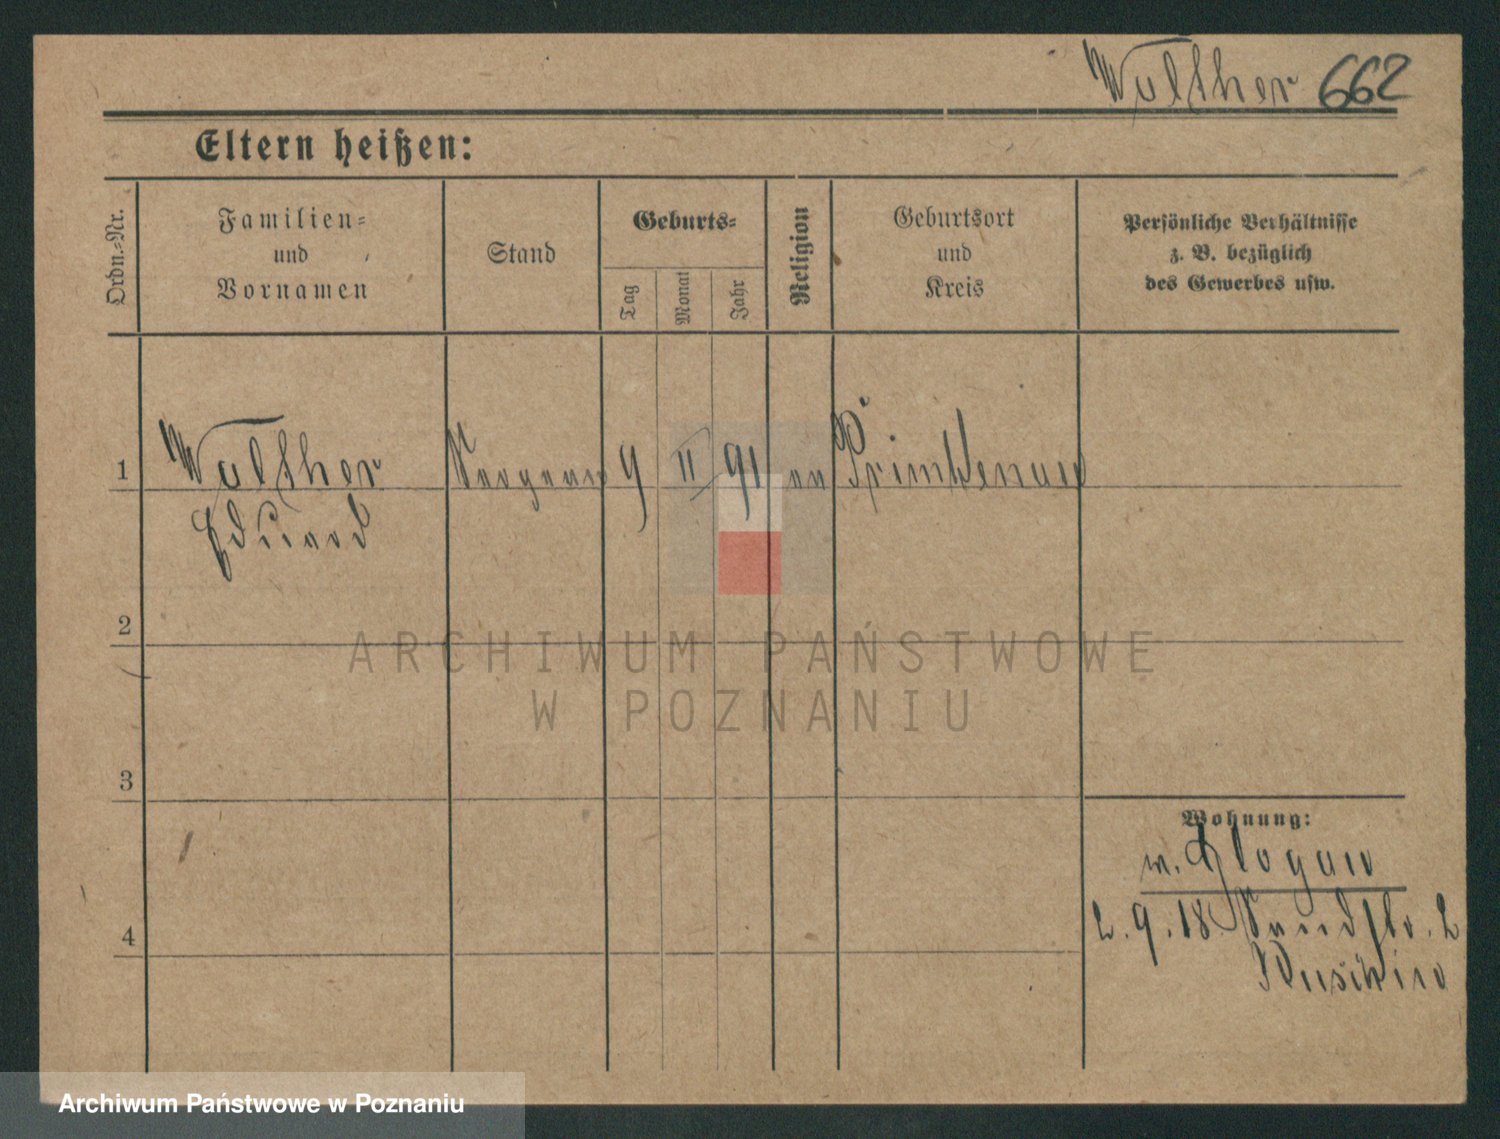 Walther 662
Eltern heißen:
Ordn.-Nr.
Familien-
und
Vornamen
Stand
Geburts-
Tag
Monat
Jahr
Religion
Geburtsort
und
Kreis
Persönliche Verhältnisse
z. B. bezüglich
des Gewerbes usw.
1 Walther 9 II 91 Primkenau
Eduard
2
3
4
Wohnung:
w. Glogau
2.9.18.
ARCHIWUM PAŃSTWOWE
W POZNANIU
Archiwum Państwowe w Poznaniu